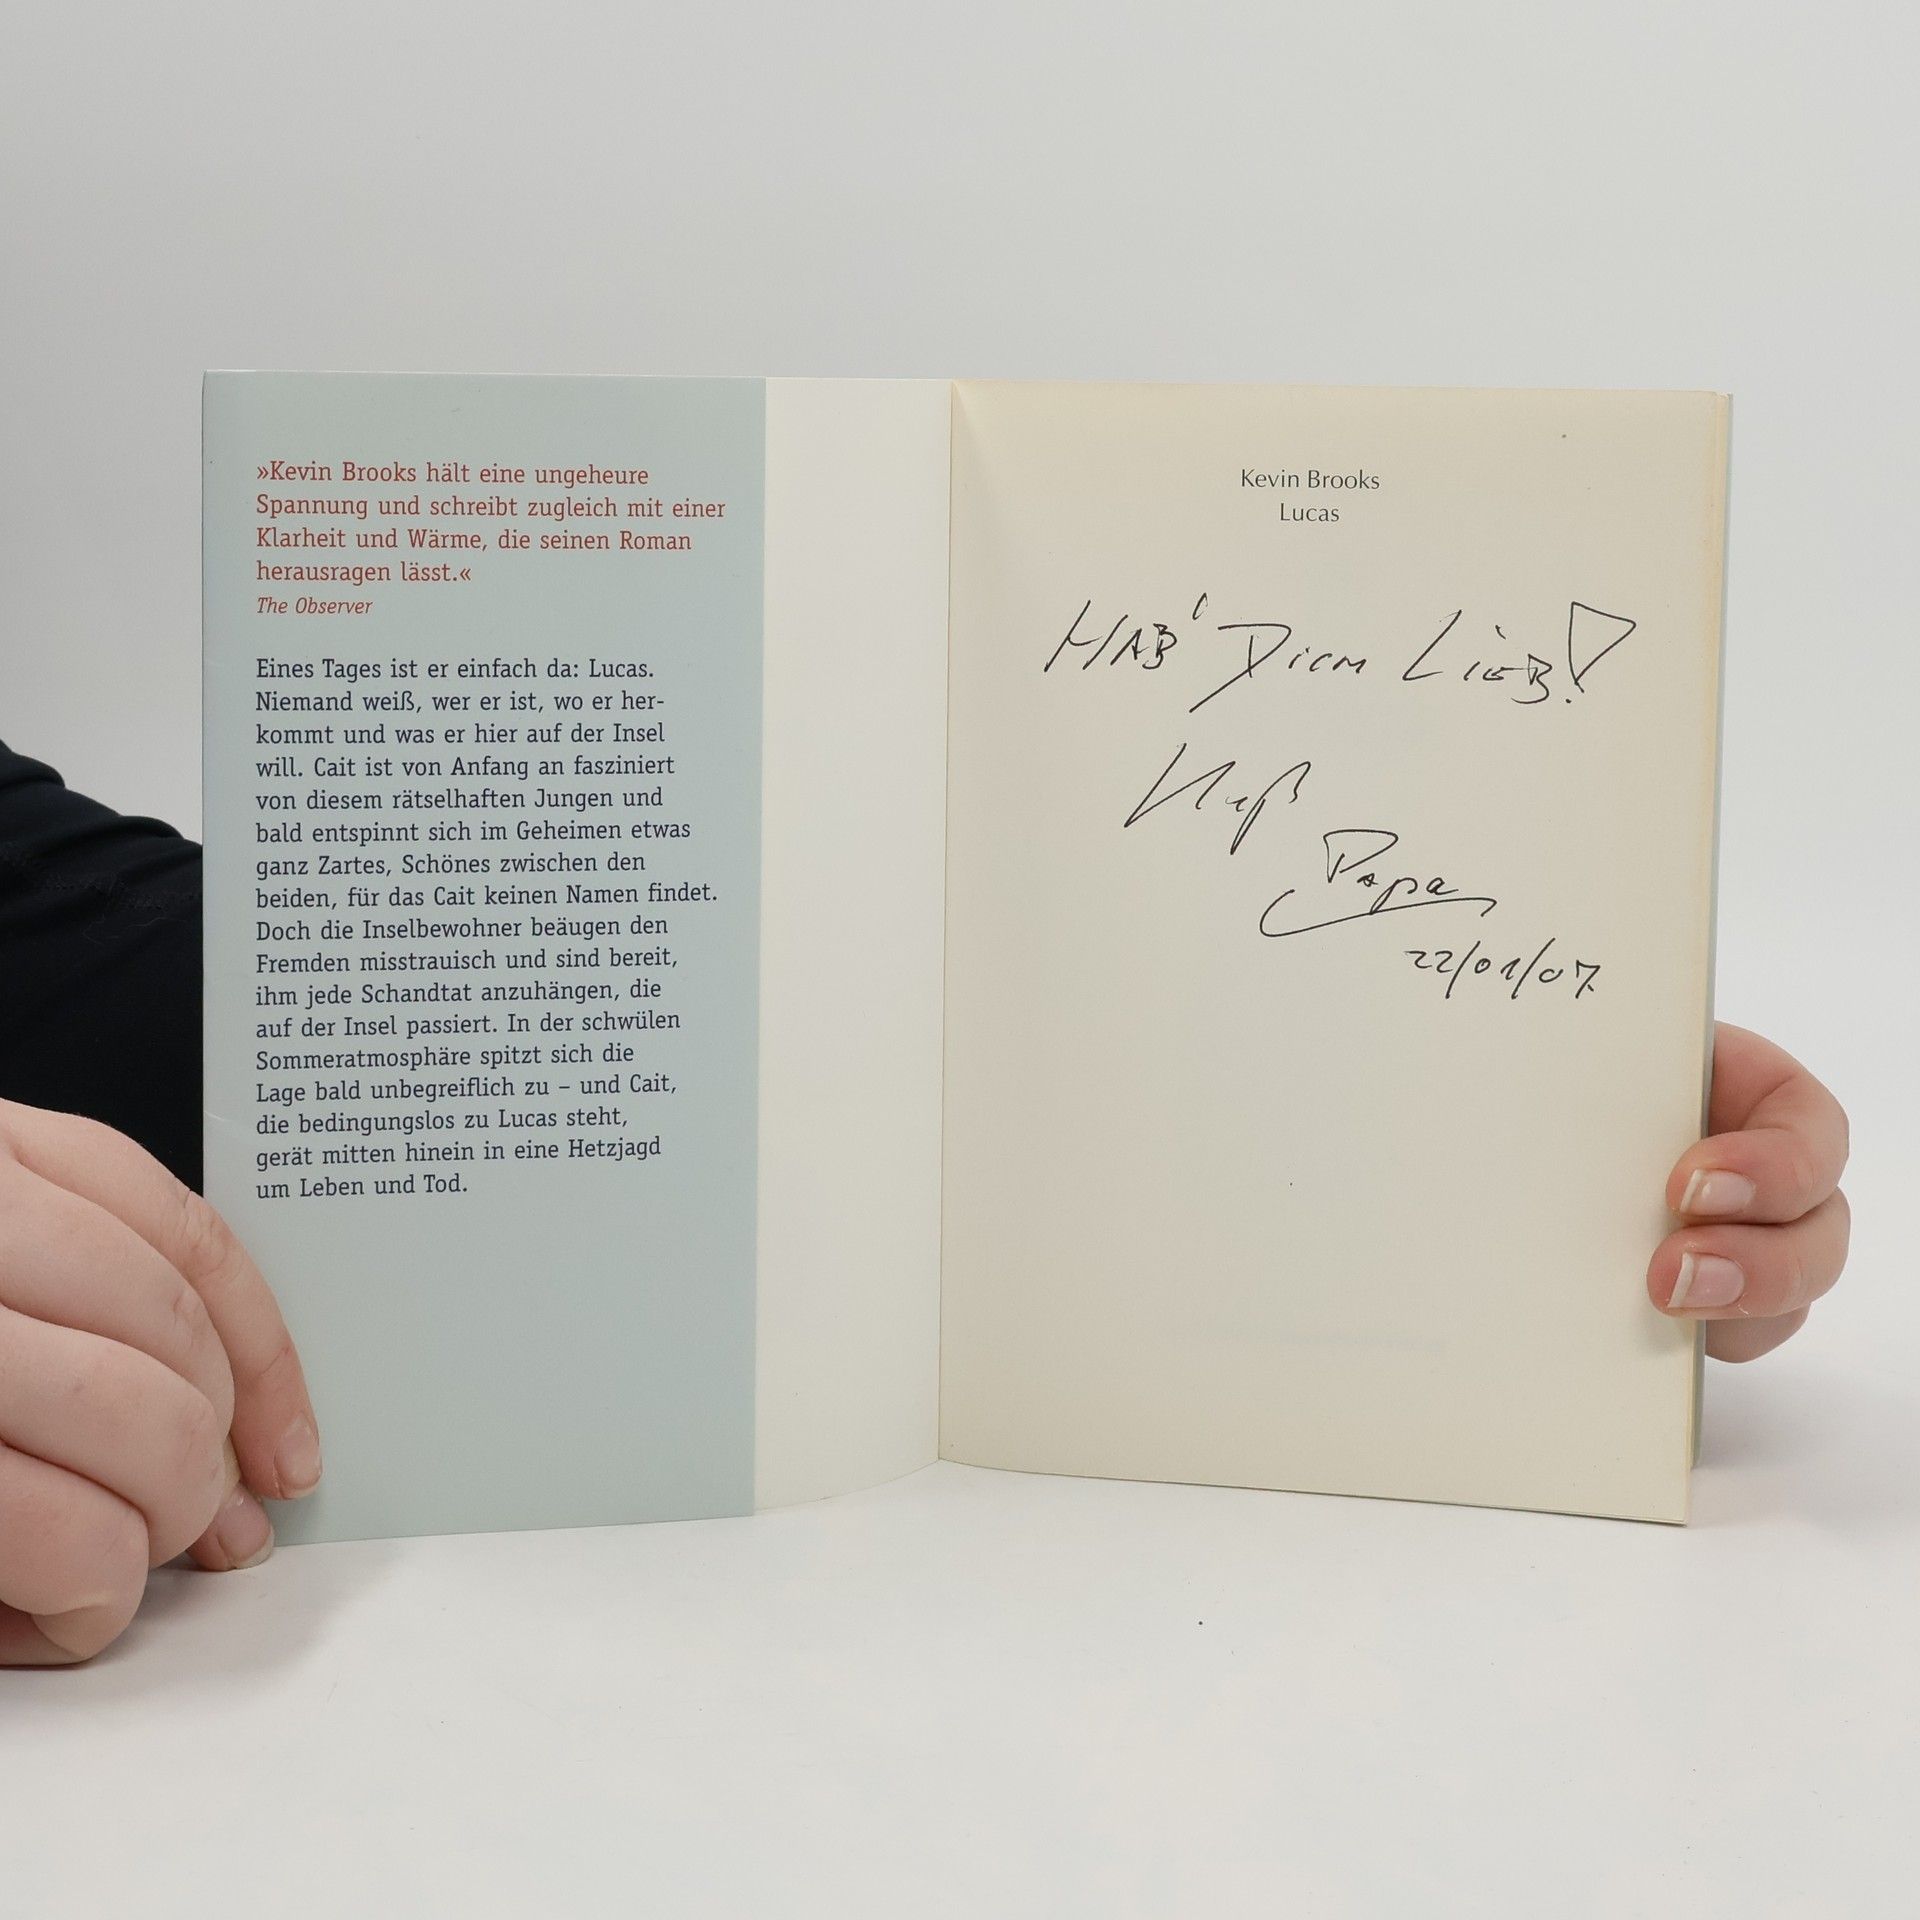 »Kevin Brooks hält eine ungeheure
Spannung und schreibt zugleich mit einer
Klarheit und Wärme, die seinen Roman
herausragen lässt.«
The Observer
Eines Tages ist er einfach da: Lucas.
Niemand weiß, wer er ist, wo er her-
kommt und was er hier auf der Insel
will. Cait ist von Anfang an fasziniert
von diesem rätselhaften Jungen und
bald entspinnt sich im Geheimen etwas
ganz Zartes, Schönes zwischen den
beiden, für das Cait keinen Namen findet.
Doch die Inselbewohner beäugen den
Fremden misstrauisch und sind bereit,
ihm jede Schandtat anzuhängen, die
auf der Insel passiert. In der schwülen
Sommeratmosphäre spitzt sich die
Lage bald unbegreiflich zu – und Cait,
die bedingungslos zu Lucas steht,
gerät mitten hinein in eine Hetzjagd
um Leben und Tod.
Kevin Brooks
Lucas
HAB' DICH LIEB!
Kuß
Papa
22/01/07.